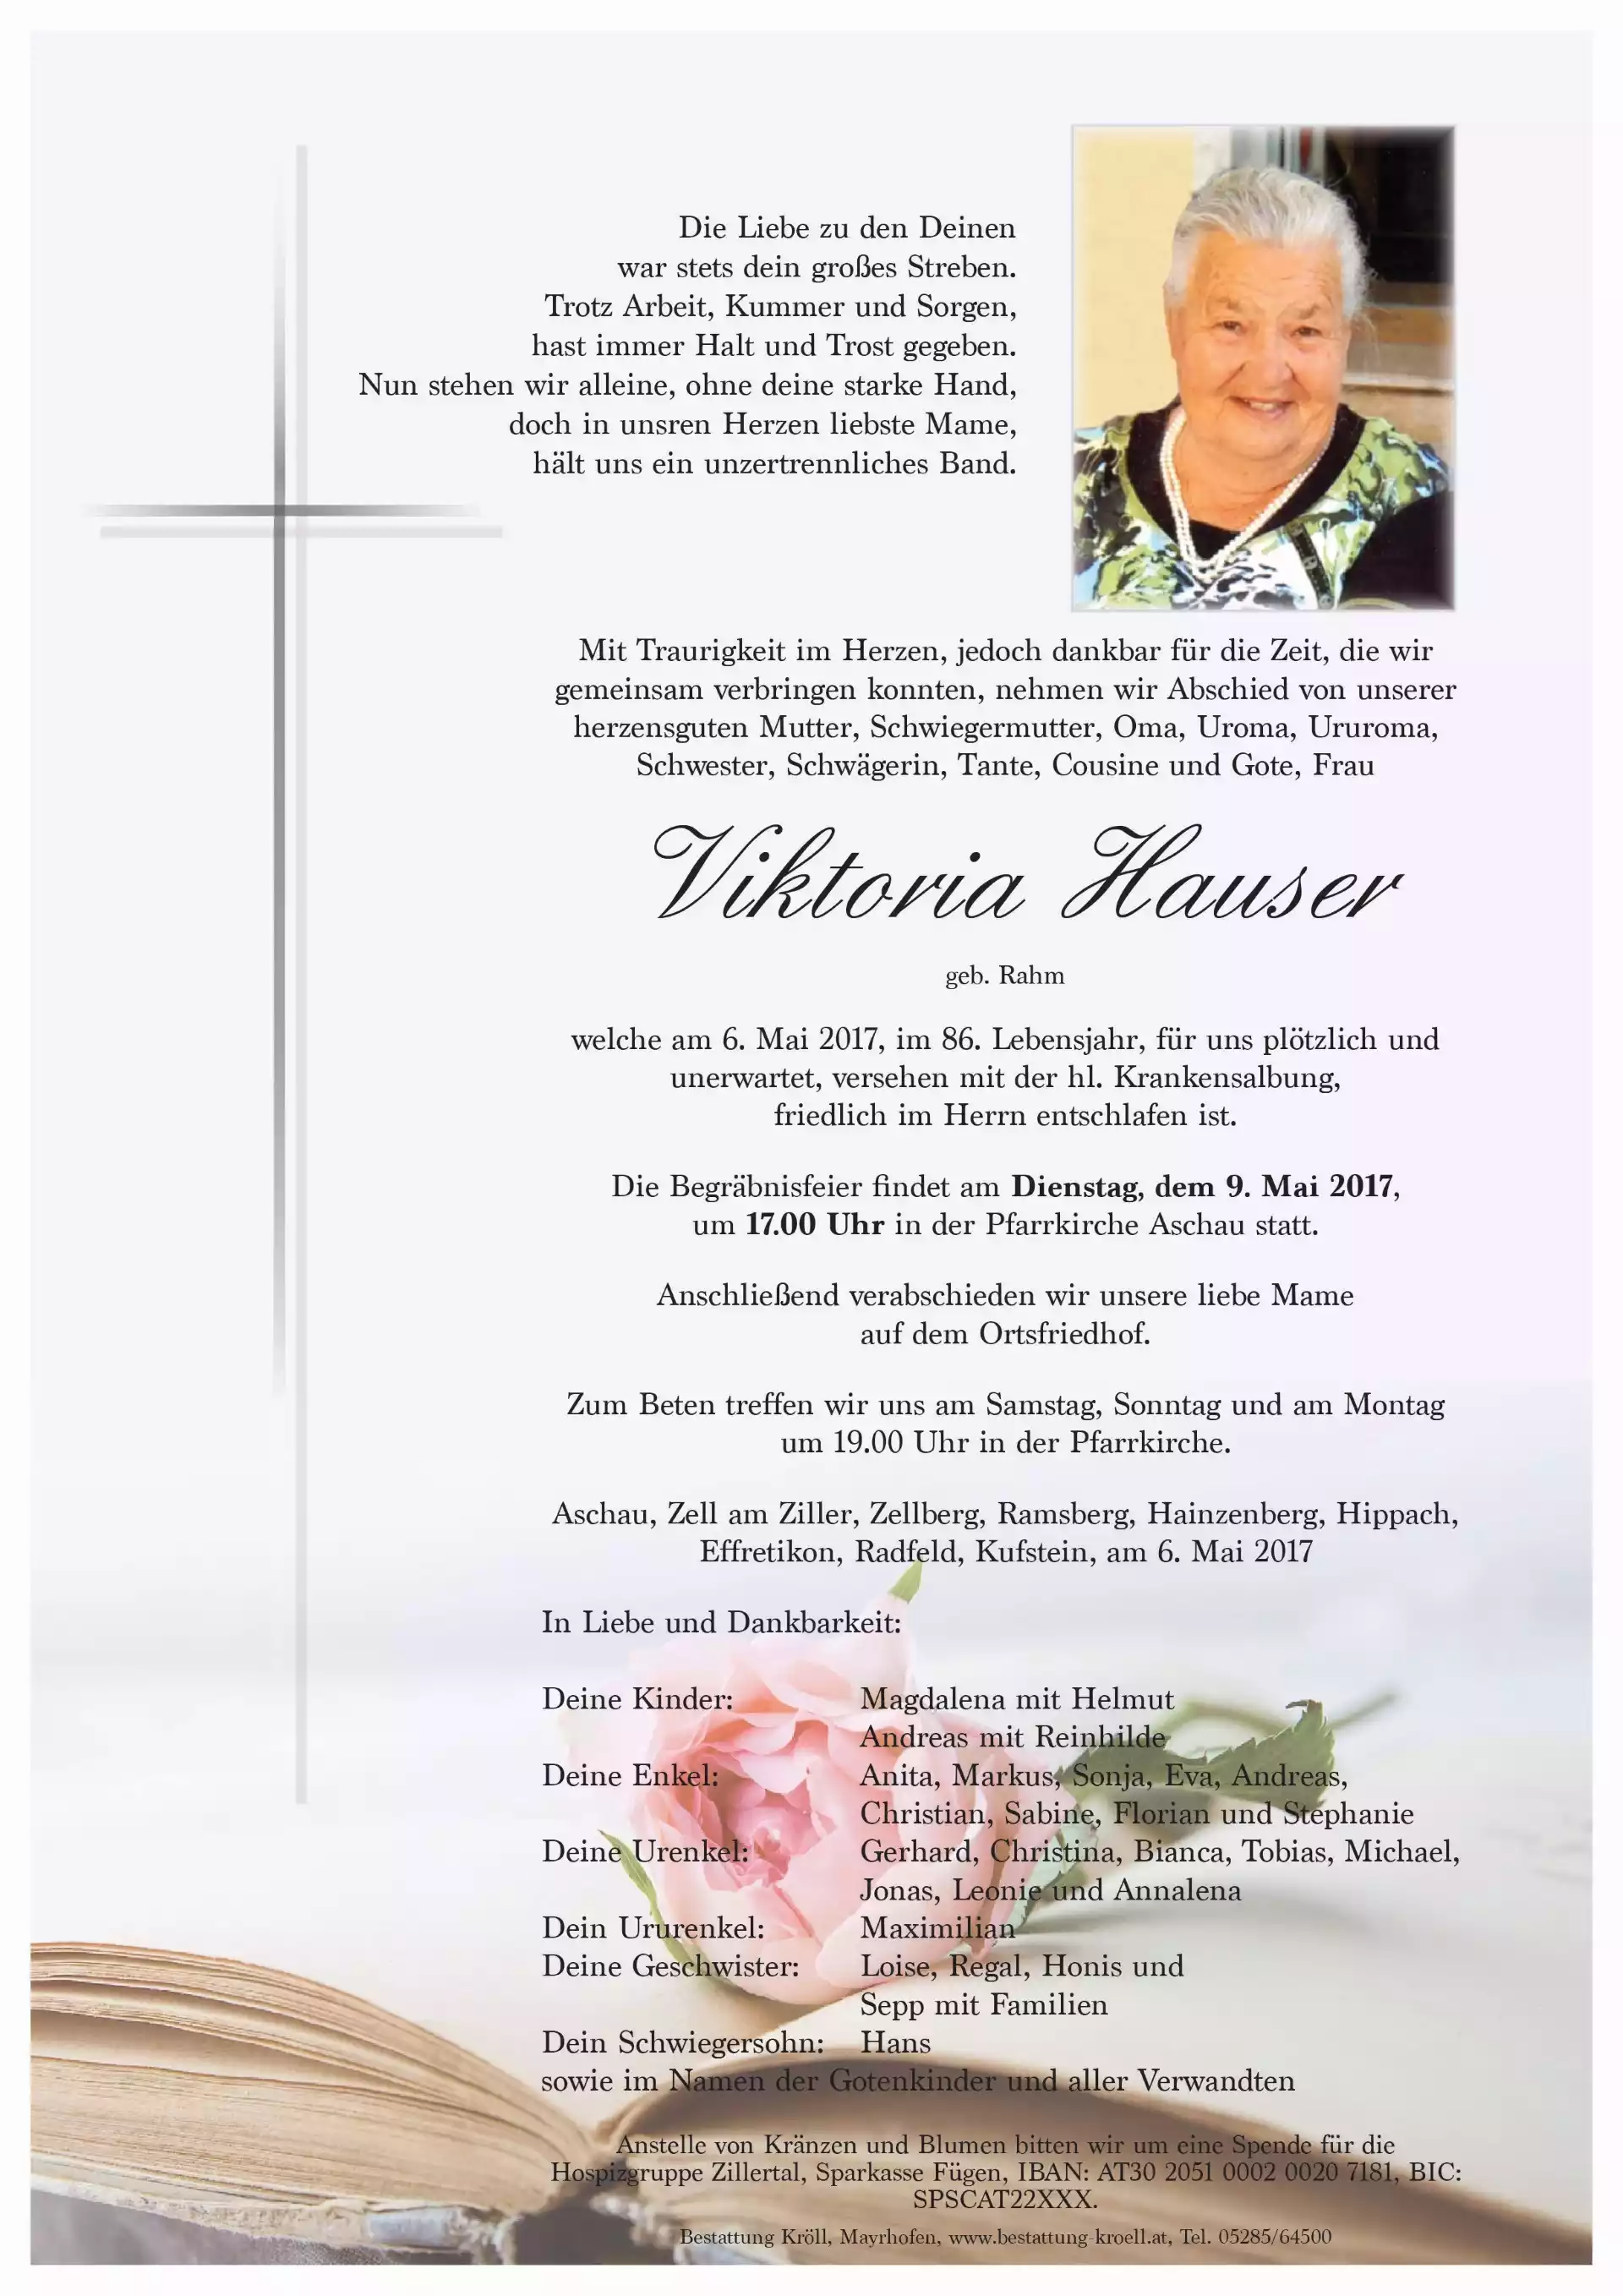 Die Liebe zu den Deinen
war stets dein großes Streben.
Trotz Arbeit, Kummer und Sorgen,
hast immer Halt und Trost gegeben.
Nun stehen wir alleine, ohne deine starke Hand,
doch in unsren Herzen liebste Mame,
hält uns ein unzertrennliches Band.
Mit Traurigkeit im Herzen, jedoch dankbar für die Zeit, die wir
gemeinsam verbringen konnten, nehmen wir Abschied von unserer
herzensguten Mutter, Schwiegermutter, Oma, Uroma, Ururoma,
Schwester, Schwägerin, Tante, Cousine und Gote, Frau
Viktoria Hauser
geb. Rahm
welche am 6. Mai 2017, im 86. Lebensjahr, für uns plötzlich und
unerwartet, versehen mit der hl. Krankensalbung,
friedlich im Herrn entschlafen ist.
Die Begräbnisfeier findet am Dienstag, dem 9. Mai 2017,
um 17.00 Uhr in der Pfarrkirche Aschau statt.
Anschließend verabschieden wir unsere liebe Mame
auf dem Ortsfriedhof.
Zum Beten treffen wir uns am Samstag, Sonntag und am Montag
um 19.00 Uhr in der Pfarrkirche.
Aschau, Zell am Ziller, Zellberg, Ramsberg, Hainzenberg, Hippach,
Effretikon, Radfeld, Kufstein, am 6. Mai 2017
In Liebe und Dankbarkeit:
Deine Kinder: Magdalena mit Helmut
Andreas mit Reinhilde
Deine Enkel: Anita, Markus, Sonja, Eva, Andreas,
Christian, Sabine, Florian und Stephanie
Deine Urenkel: Gerhard, Christina, Bianca, Tobias, Michael,
Jonas, Leonie und Annalena
Dein Ururenkel: Maximilian
Deine Geschwister: Loise, Regal, Honis und
Sepp mit Familien
Dein Schwiegersohn: Hans
sowie im Namen der Gotenkinder und aller Verwandten
Anstelle von Kränzen und Blumen bitten wir um eine Spende für die
Hospizgruppe Zillertal, Sparkasse Fügen, IBAN: AT30 2051 0002 0020 7181, BIC:
SPSCAT22XXX.
Bestattung Kröll, Mayrhofen, www.bestattung-kroell.at, Tel. 05285/64500